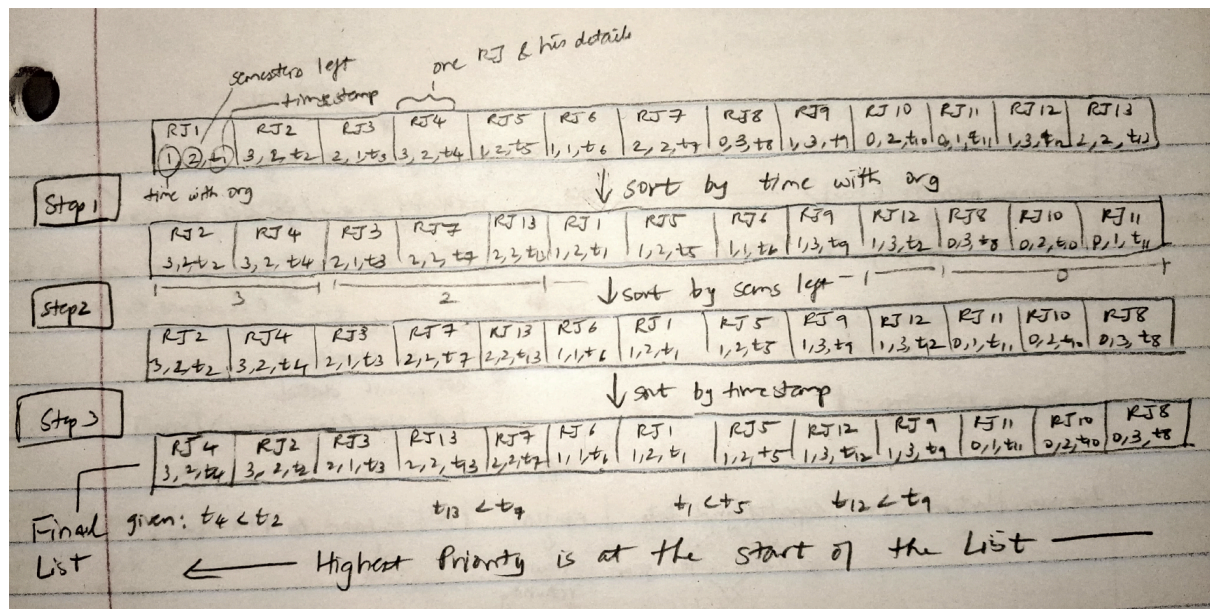 semesters left
one RJ & his details
timestamp
RJ1 RJ2 RJ3 RJ4 RJ5 RJ6 RJ7 RJ8 RJ9 RJ10 RJ11 RJ12 RJ13
1, 2, t1 3, 2, t2 2, 1, t3 3, 2, t4 1, 2, t5 1, 1, t6 2, 2, t7 0, 3, t8 1, 3, t9 0, 2, t10 0, 1, t11 1, 3, t12 2, 2, t13
Step 1 time with org ↓ sort by time with org
RJ2 RJ4 RJ3 RJ7 RJ13 RJ1 RJ5 RJ6 RJ9 RJ12 RJ8 RJ10 RJ11
3, 2, t2 3, 2, t4 2, 1, t3 2, 2, t7 2, 2, t13 1, 2, t1 1, 2, t5 1, 1, t6 1, 3, t9 1, 3, t2 0, 3, t8 0, 2, t10 0, 1, t11
Step2 3 2 ↓ sort by sems left 1 0
RJ2 RJ4 RJ3 RJ7 RJ13 RJ6 RJ1 RJ5 RJ9 RJ12 RJ11 RJ10 RJ8
3, 2, t2 3, 2, t4 2, 1, t3 2, 2, t7 2, 2, t13 1, 1, t6 1, 2, t1 1, 2, t5 1, 3, t9 1, 3, t12 0, 1, t11 0, 2, t10 0, 3, t8
↓ sort by timestamp
Step 3
RJ4 RJ2 RJ3 RJ13 RJ7 RJ6 RJ1 RJ5 RJ12 RJ9 RJ11 RJ10 RJ8
3, 2, t4 3, 2, t2 2, 1, t3 2, 2, t13 2, 2, t7 1, 1, t6 1, 2, t1 1, 2, t5 1, 3, t12 1, 3, t9 0, 1, t11 0, 2, t10 0, 3, t8
Final given: t4 < t2 t13 < t7 t1 < t5 t12 < t9
List ← Highest Priority is at the start of the List